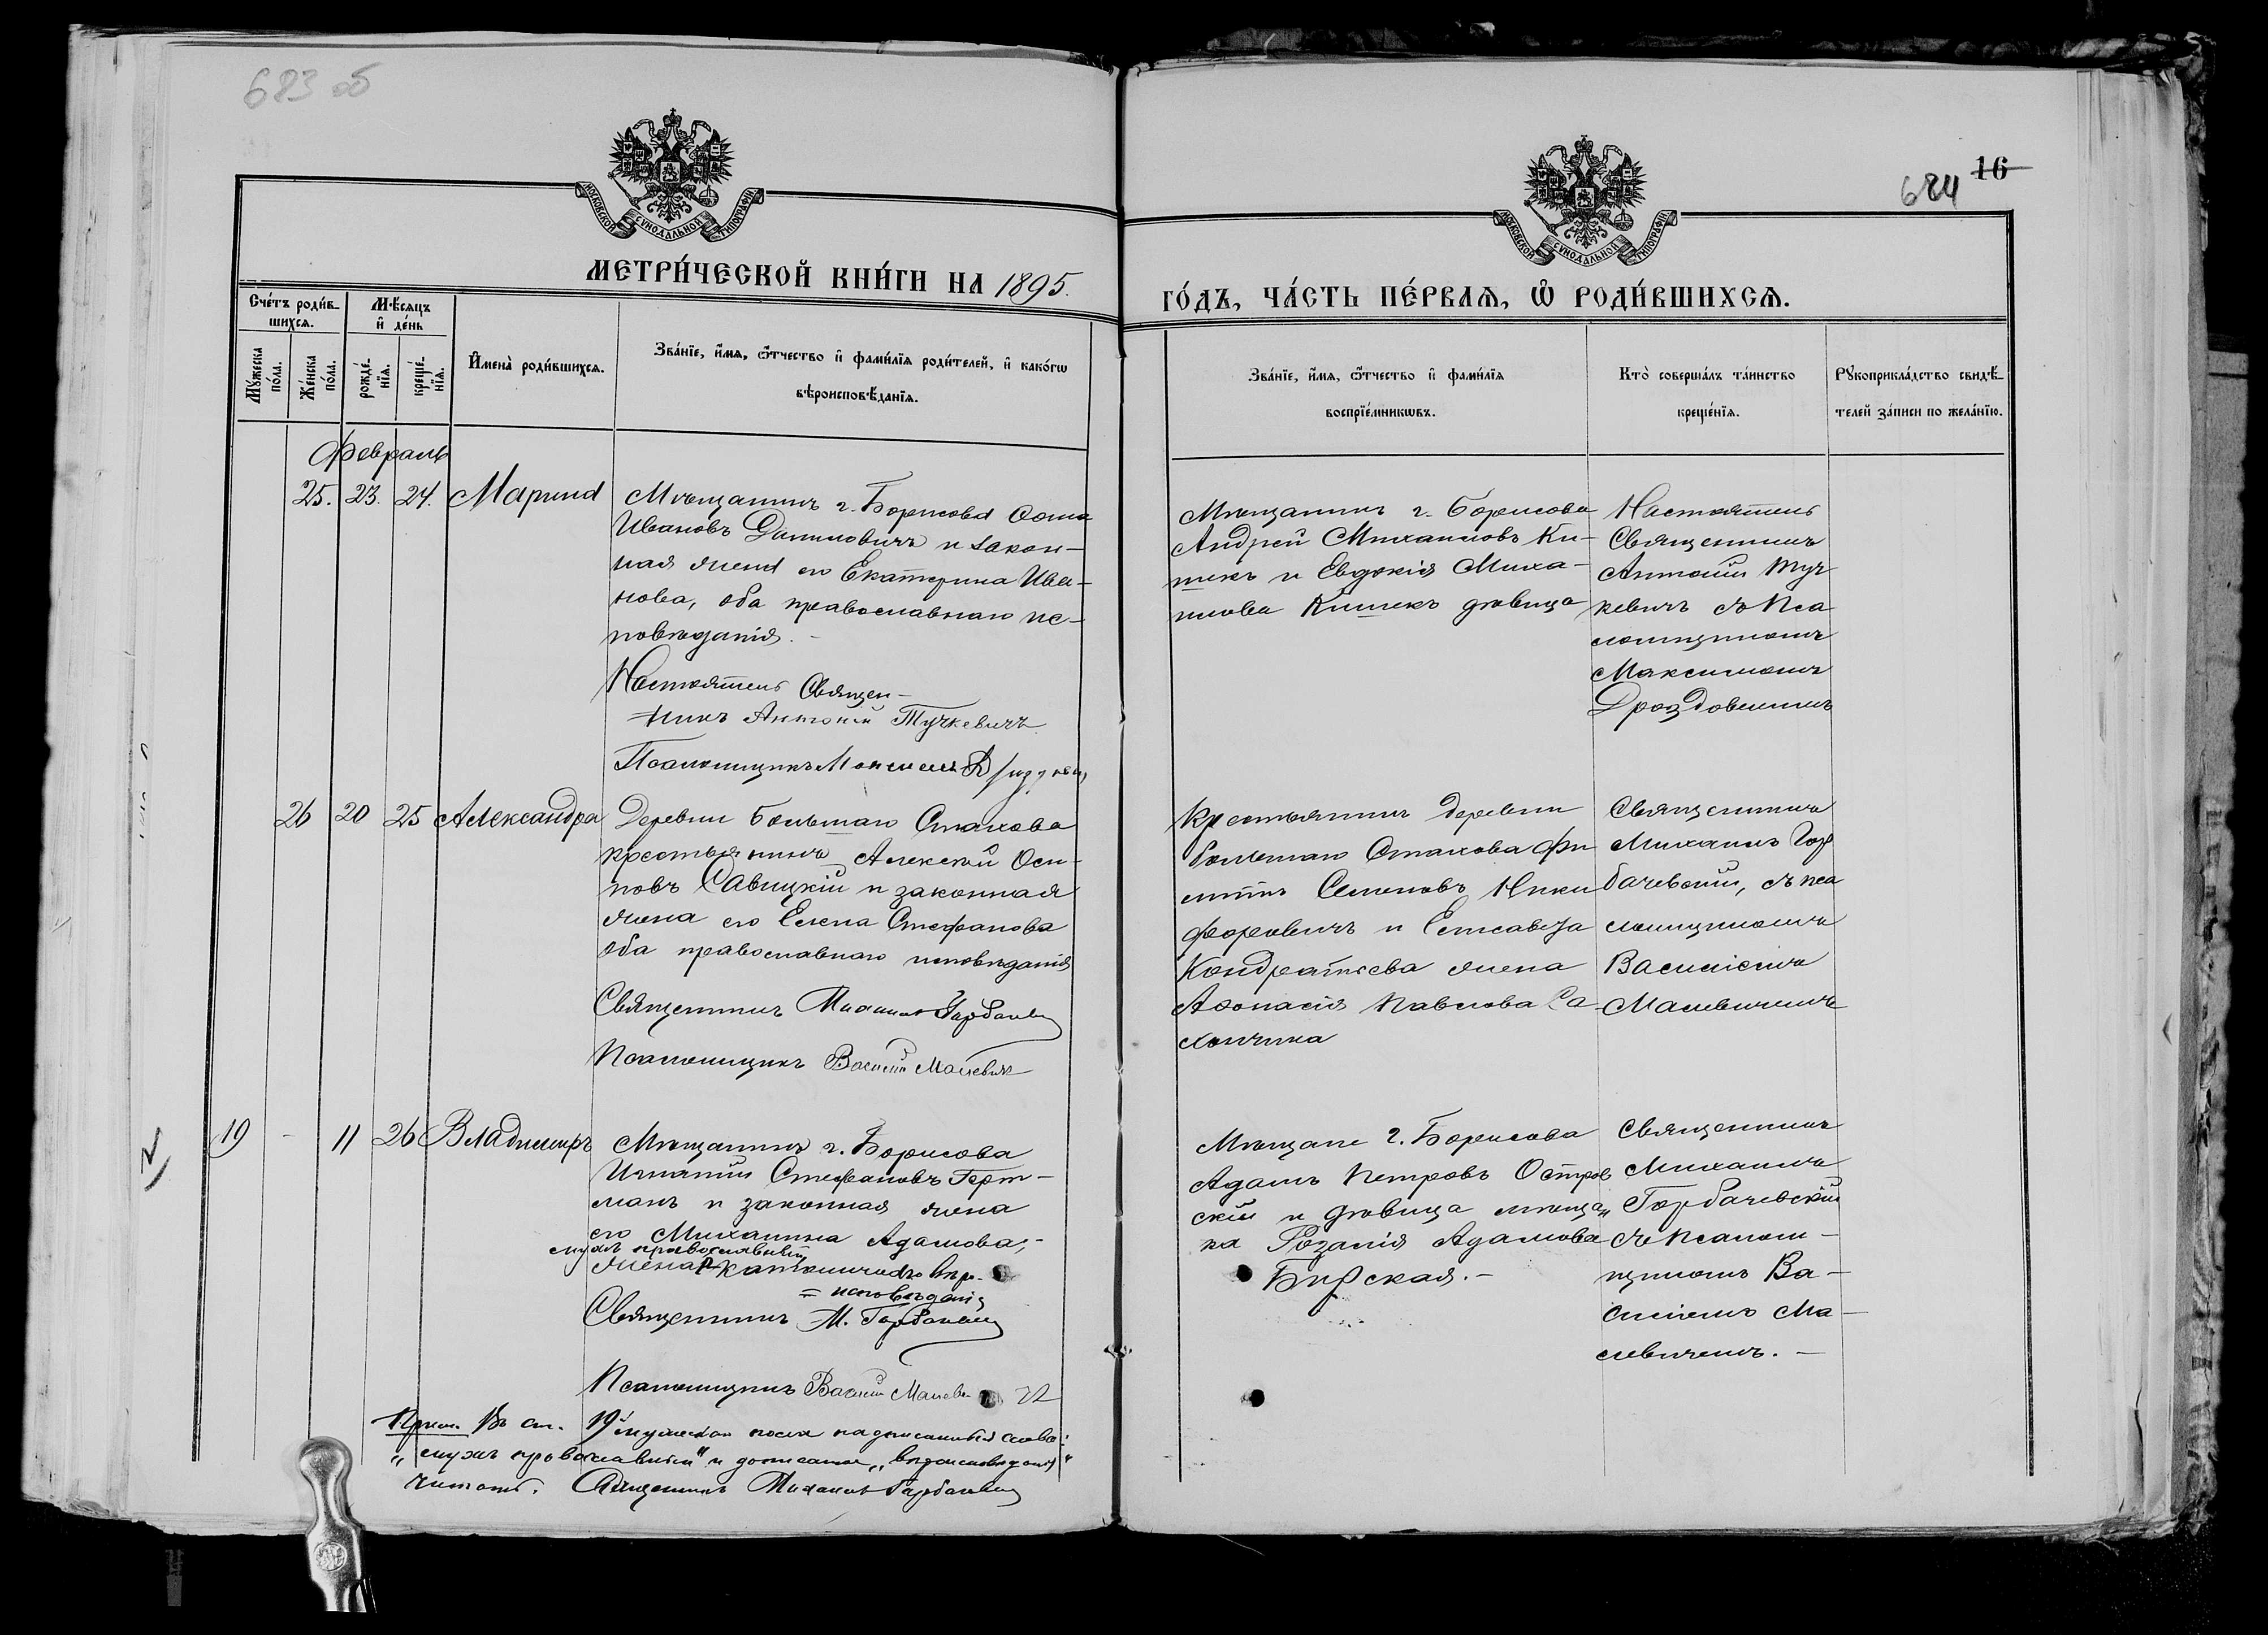 683 об
684 16
МОСКОВСКОЙ СѴНОДАЛЬНОЙ ТИПОГРАФІИ
МОСКОВСКОЙ СѴНОДАЛЬНОЙ ТИПОГРАФІИ
МЕТРИ́ЧЕСКОЙ КНИ́ГИ НА 1895.
ГО́ДЪ, ЧА́СТЬ ПЕ́РВАЯ, Ѡ҆ РОДИ́ВШИХСЯ.
Сче́тъ роди́в-
шихся.
Мѣ́сяцъ
и҆ де́нь
Мꙋ́жеска
по́ла.
Же́нска
по́ла.
рожде́-
нїѧ.
креще́-
нїѧ.
И҆мена̀ роди́вшихсѧ.
Зва́нїе, и҆́мѧ, ѻ҆́тчество и҆ фами́лїѧ роди́телей, и҆ како́гѡ
вѣроисповѣ́данїѧ.
Зва́нїе, и҆́мѧ, ѻ҆́тчество и҆ фами́лїѧ
воспрїе́мникѡвъ.
Кто̀ соверша́лъ та́инство
креще́нїѧ.
Рꙋкоприкла́дство свидѣ́-
телей за́писи по жела́нїю.
Февраль
25. 23. 24. Марина
Мѣщанинъ г. Борисова Ѳома
Ивановъ Даниловичъ и закон-
ная жена его Екатерина Ива-
нова, оба православнаго ис-
повѣданія.-
Настоятель Священ-
никъ Антоній Тучкевичъ
Псаломщикъ Максимъ
Мѣщанинъ г. Борисова
Андрей Михаиловъ Ки-
шекъ и Евдокія Миха-
илова Кишекъ дѣвица
Настоятель
Священникъ
Антоній Туч
кевичъ съ Пса
ломщикомъ
Максимомъ
Дроздовскимъ
26 20 25 Александра
Деревни Большаго Стахова
крестьянинъ Алексѣй Оси-
повъ Савицкій и законная
жена его Елена Стефанова
оба православнаго исповѣданія
Священникъ Михаилъ Горбачевскій
Псаломщикъ Василій Малевичъ
Крестьянинъ деревни
большаго Стахова Фи
липпъ Семеновъ Ники
форовичъ и Елисавета
Кондратьева жена
Аѳонасія Павлова Са
хончика
Священникъ
Михаилъ Гор
бачевскій, съ пса
ломщикомъ
Василіемъ
Малевичемъ
19 - 11 26 Владимиръ
Мѣщанинъ г. Борисова
Игнатій Стефановъ Герт-
манъ и законная жена
его Михалина Адамова,-
мужъ православный
жена католическаго вѣро-
= исповѣданія
Священникъ М. Горбачевскій
Псаломщикъ Василій Малевичъ
Мѣщане г. Борисова
Адамъ Петровъ Остров
скій и дѣвица мѣщан
ка Розалія Адамова
Бирская.-
Священникъ
Михаилъ
Горбачевскій
съ псалом-
щикомъ Ва-
силіемъ Ма-
левичемъ.-
Прим. Въ ст. 19й мужскаго пола надписанныя слова:
„мужъ православный" и дописанное „вѣроисповѣданія"
читать. Священникъ Михаилъ Горбачевскій